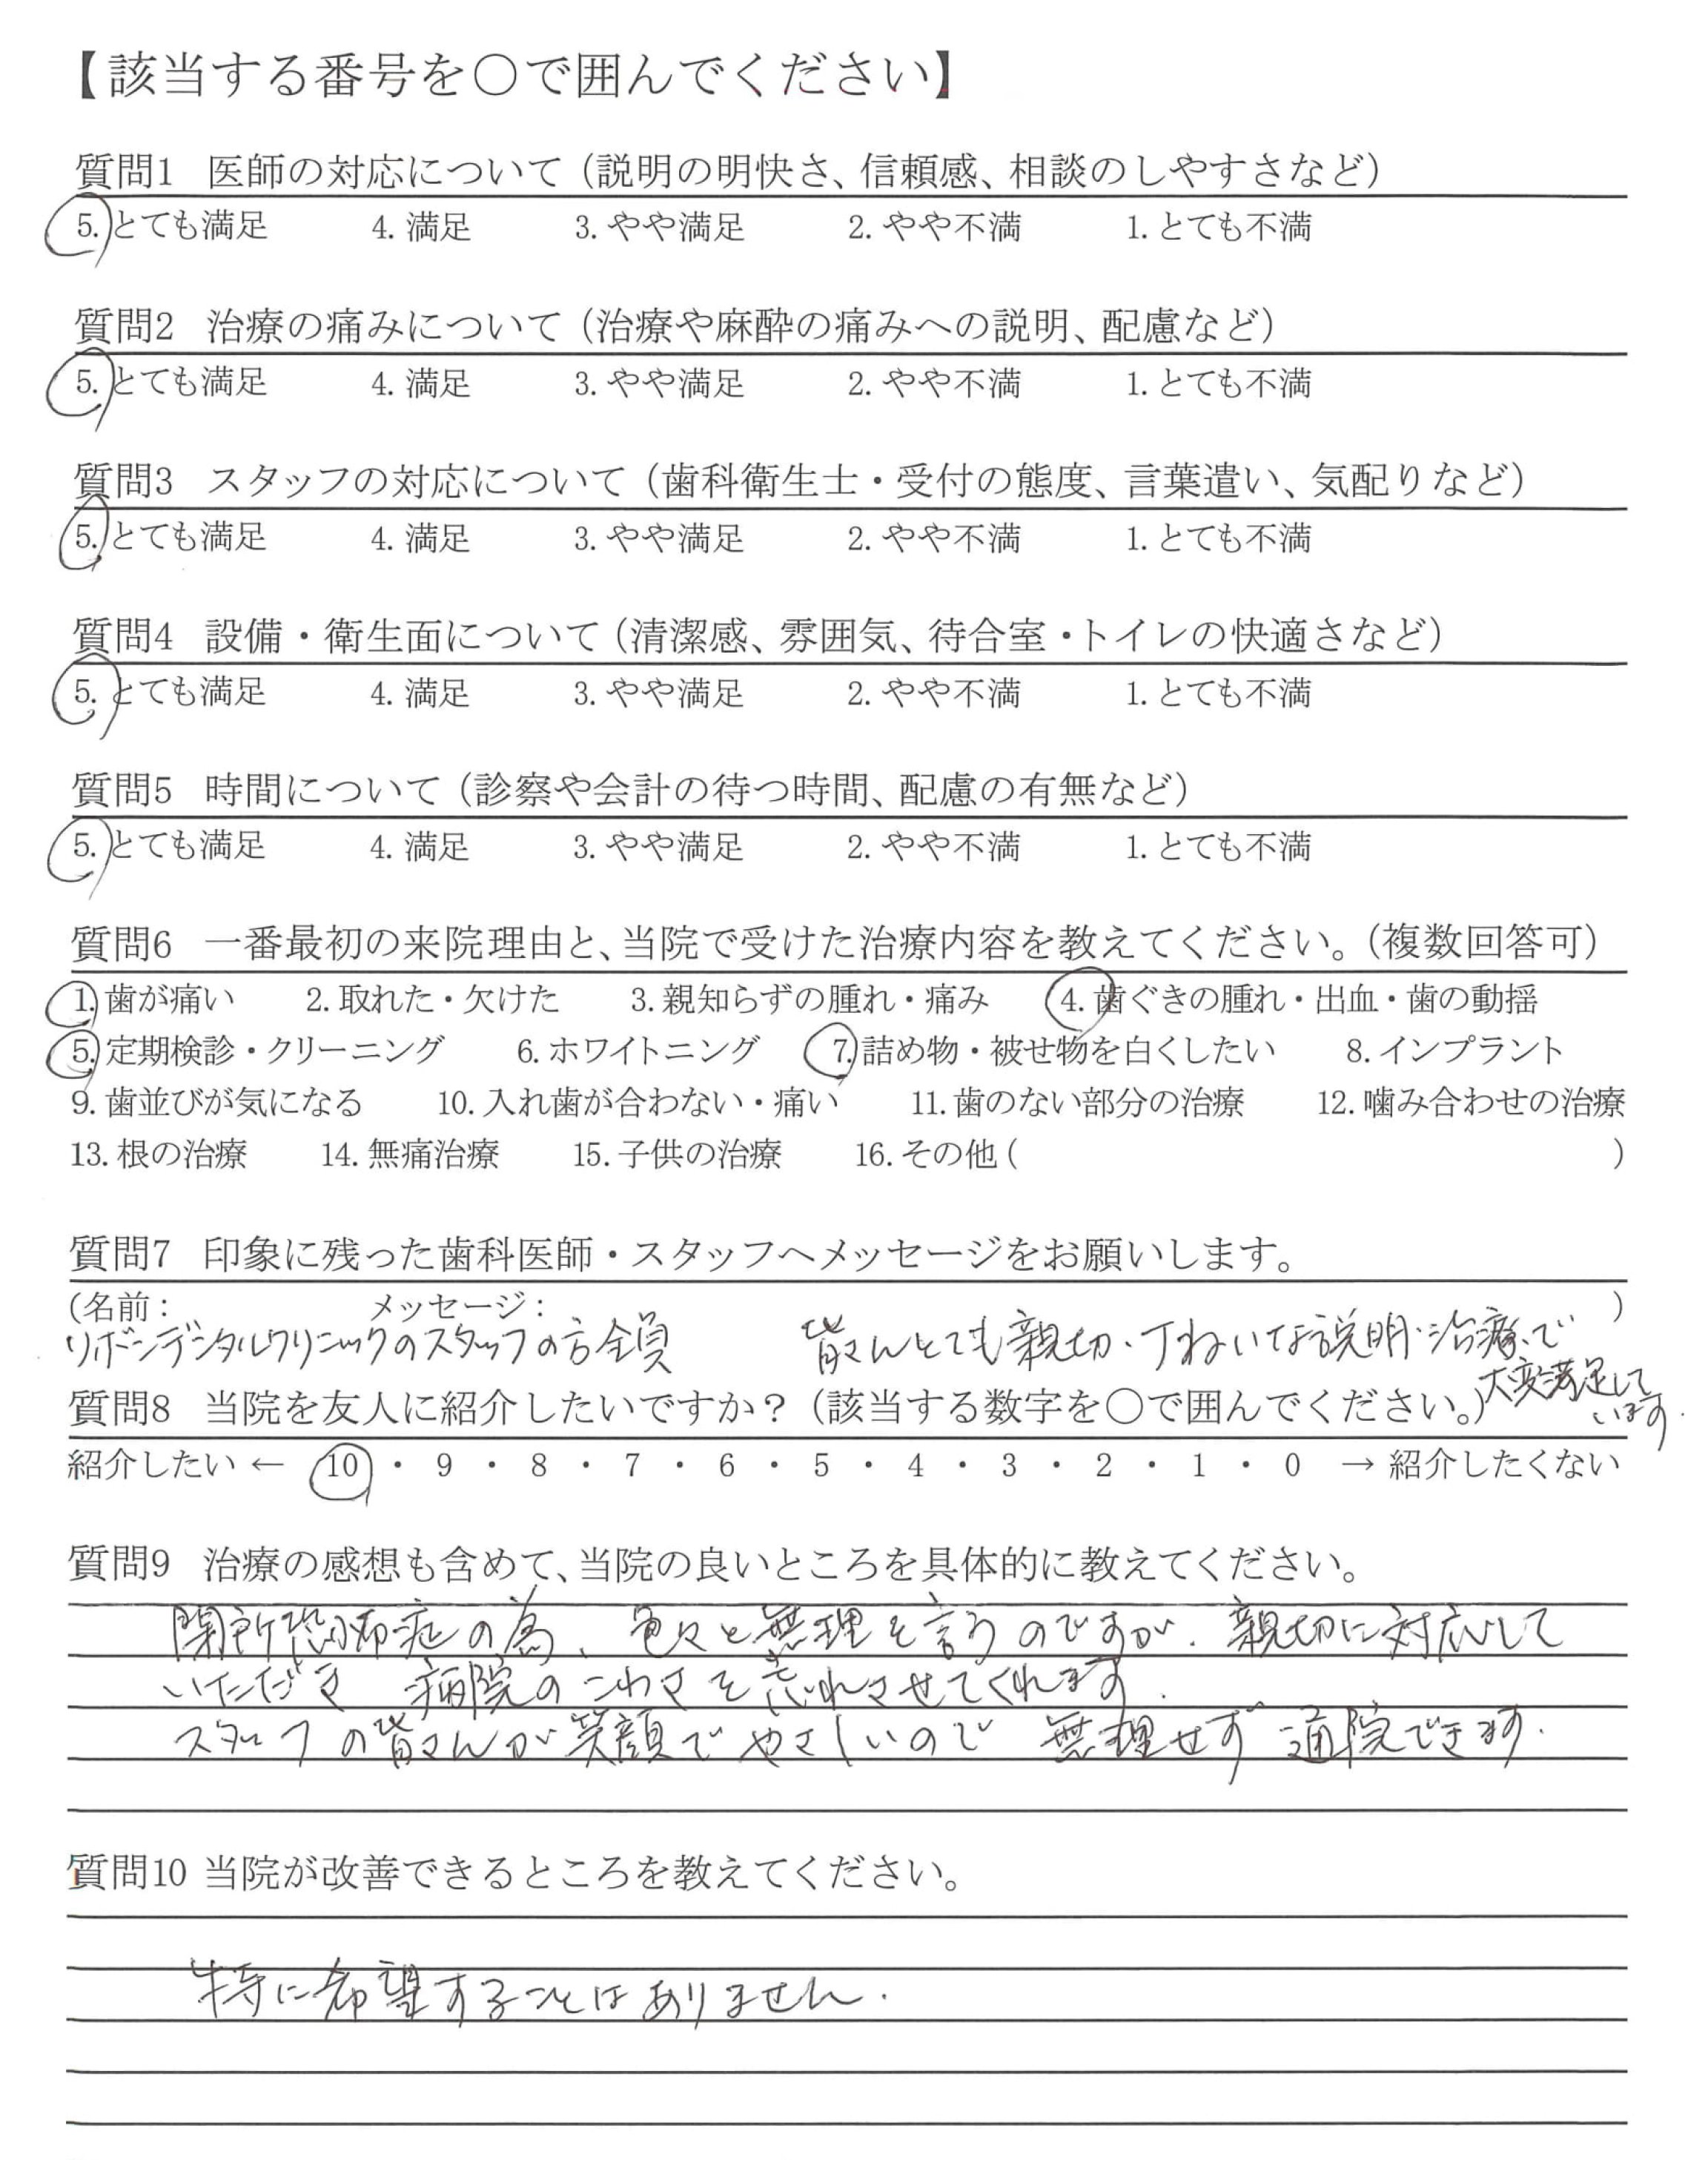 【該当する番号を〇で囲んでください】
質問1 医師の対応について（説明の明快さ、信頼感、相談のしやすさなど）
5. とても満足 4. 満足 3. やや満足 2. やや不満 1. とても不満
質問2 治療の痛みについて（治療や麻酔の痛みへの説明、配慮など）
5. とても満足 4. 満足 3. やや満足 2. やや不満 1. とても不満
質問3 スタッフの対応について（歯科衛生士・受付の態度、言葉遣い、気配りなど）
5. とても満足 4. 満足 3. やや満足 2. やや不満 1. とても不満
質問4 設備・衛生面について（清潔感、雰囲気、待合室・トイレの快適さなど）
5. とても満足 4. 満足 3. やや満足 2. やや不満 1. とても不満
質問5 時間について（診察や会計の待つ時間、配慮の有無など）
5. とても満足 4. 満足 3. やや満足 2. やや不満 1. とても不満
質問6 一番最初の来院理由と、当院で受けた治療内容を教えてください。（複数回答可）
1. 歯が痛い 2. 取れた・欠けた 3. 親知らずの腫れ・痛み 4. 歯ぐきの腫れ・出血・歯の動揺
5. 定期検診・クリーニング 6. ホワイトニング 7. 詰め物・被せ物を白くしたい 8. インプラント
9. 歯並びが気になる 10. 入れ歯が合わない・痛い 11. 歯のない部分の治療 12. 噛み合わせの治療
13. 根の治療 14. 無痛治療 15. 子供の治療 16. その他（ ）
質問7 印象に残った歯科医師・スタッフへメッセージをお願いします。
（名前： メッセージ： ）
リボンデンタルクリニックのスタッフの方全員 皆さんとても親切・丁ねいな説明・治療で
大変満足して
います.
質問8 当院を友人に紹介したいですか？（該当する数字を〇で囲んでください。）
紹介したい ← 10 ・ 9 ・ 8 ・ 7 ・ 6 ・ 5 ・ 4 ・ 3 ・ 2 ・ 1 ・ 0 → 紹介したくない
質問9 治療の感想も含めて、当院の良いところを具体的に教えてください。
閉所恐怖症の為、色々と無理を言うのですが、親切に対応して
いただき 病院のこわさを忘れさせてくれます.
スタッフの皆さんが笑顔でやさしいので 無理せず通院できます.
質問10 当院が改善できるところを教えてください。
特に希望することはありません.